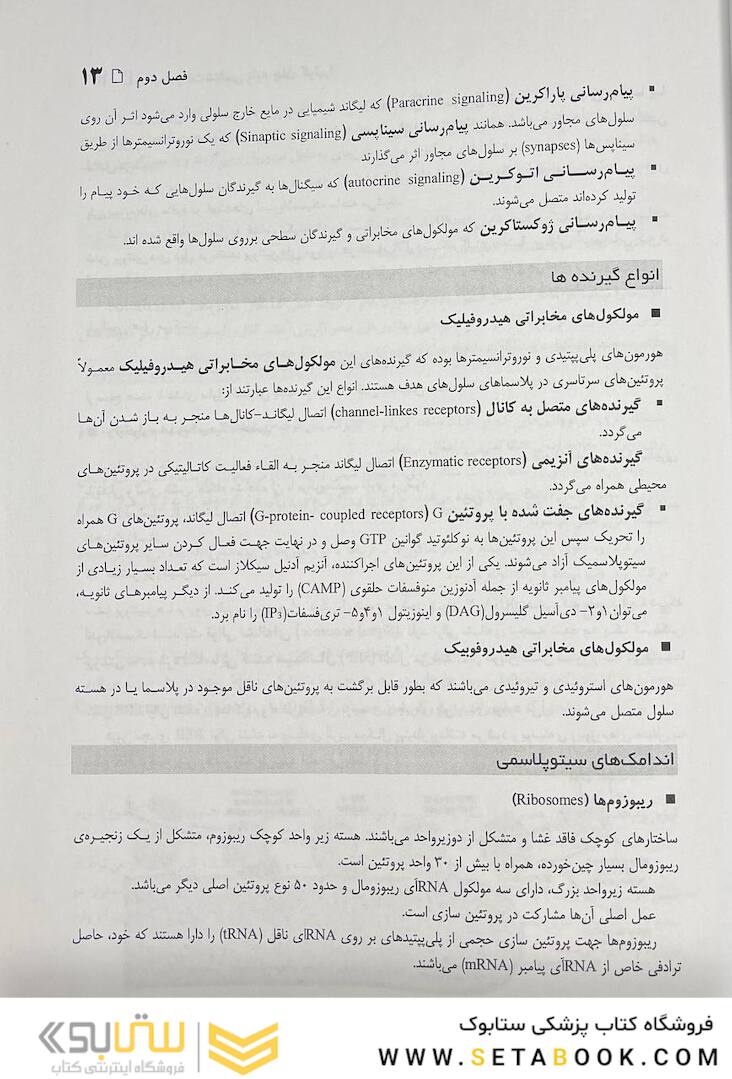 فصل دوم ۱۳
پیام‌رسانی پاراکرین (Paracrine signaling) که لیگاند شیمیایی در مایع خارج سلولی وارد می‌شود اثر آن روی
سلول‌های مجاور می‌باشد. همانند پیام‌رسانی سیناپسی (Sinaptic signaling) که یک نوروترانسیمترها از طریق
سیناپس‌ها (synapses) بر سلول‌های مجاور اثر می‌گذارند
پیام‌رسانی اتوکرین (autocrine signaling) که سیگنال‌ها به گیرندگان سلول‌هایی که خود پیام را
تولید کرده‌اند متصل می‌شوند.
پیام‌رسانی ژوکستاکرین که مولکول‌های مخابراتی و گیرندگان سطحی برروی سلول‌ها واقع شده اند.
انواع گیرنده ها
مولکول‌های مخابراتی هیدروفیلیک
هورمون‌های پلی‌پپتیدی و نوروترانسیمترها بوده که گیرنده‌های این مولکول‌های مخابراتی هیدروفیلیک معمولاً
پروتئین‌های سرتاسری در پلاسماهای سلول‌های هدف هستند. انواع این گیرنده‌ها عبارتند از:
گیرنده‌های متصل به کانال (channel-linkes receptors) اتصال لیگاند-کانال‌ها منجر به باز شدن آن‌ها
می‌گردد.
گیرنده‌های آنزیمی (Enzymatic receptors) اتصال لیگاند منجر به القاء فعالیت کاتالیتیکی در پروتئین‌های
محیطی همراه می‌گردد.
گیرنده‌های جفت شده با پروتئین G (G-protein- coupled receptors) اتصال لیگاند، پروتئین‌های G همراه
را تحریک سپس این پروتئین‌ها به نوکلئوتید گوانین GTP وصل و در نهایت جهت فعال کردن سایر پروتئین‌های
سیتوپلاسمیک آزاد می‌شوند. یکی از این پروتئین‌های اجراکننده، آنزیم آدنیل سیکلاز است که تعداد بسیار زیادی از
مولکول‌های پیامبر ثانویه از جمله آدنوزین منوفسفات حلقوی (CAMP) را تولید می‌کند. از دیگر پیامبرهای ثانویه،
می‌توان۱و۲- دی‌آسیل گلیسرول(DAG) و اینوزیتول ۱و۴و۵- تری‌فسفات(IP3) را نام برد.
مولکول‌های مخابراتی هیدروفوبیک
هورمون‌های استروئیدی و تیروئیدی می‌باشند که بطور قابل برگشت به پروتئین‌های ناقل موجود در پلاسما یا در هسته
سلول متصل می‌شوند.
اندامک‌های سیتوپلاسمی
ریبوزوم‌ها (Ribosomes)
ساختارهای کوچک فاقد غشا و متشکل از دوزیرواحد می‌باشند. هسته زیر واحد کوچک ریبوزوم، متشکل از یک زنجیره‌ی
ریبوزومال بسیار چین‌خورده، همراه با بیش از ۳۰ واحد پروتئین است.
هسته زیرواحد بزرگ، دارای سه مولکول RNAی ریبوزومال و حدود ۵۰ نوع پروتئین اصلی دیگر می‌باشد.
عمل اصلی آن‌ها مشارکت در پروتئین سازی است.
ریبوزوم‌ها جهت پروتئین سازی حجمی از پلی‌پپتیدهای بر روی RNAای ناقل (tRNA) را دارا هستند که خود، حاصل
ترادفی خاص از RNAآی پیامبر (mRNA) می‌باشند.
ستابوک
فروشگاه اینترنتی کتاب
فروشگاه کتاب پزشکی ستابوک
WWW.SETABOOK.COM